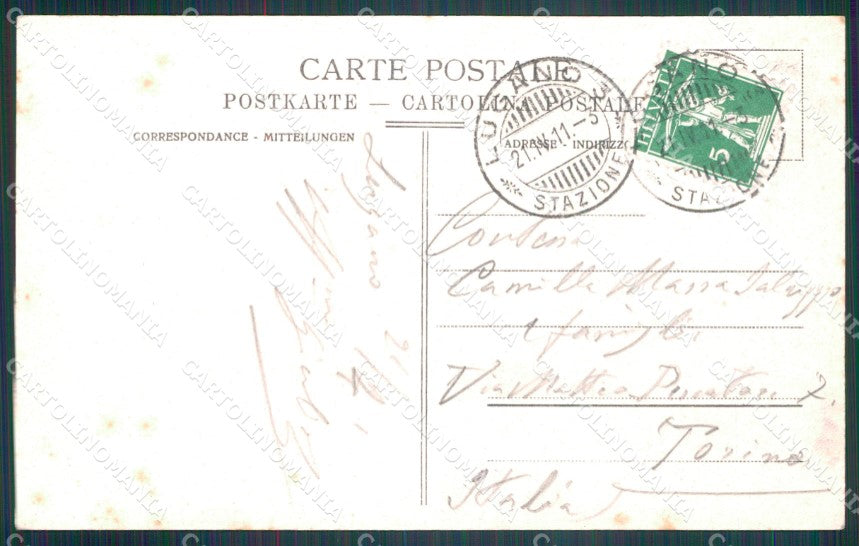 CARTE POSTALE
POSTKARTE — CARTOLINA POSTALE
CORRESPONDANCE - MITTEILUNGEN
ADRESSE INDIRIZZO
LUGANO 3
21.IV.11.-5
STAZIONE
LUGANO
STAZIONE
HELVETIA
5
Lugano 21
Contessa
Camilla Massa Saluzzo
e famiglia
Via Matteo Pescatore 7.
Torino
Italia
CARTOLINOMANIA